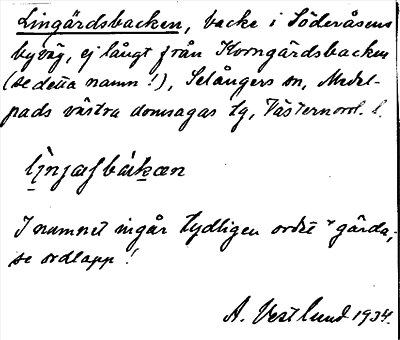 Lingärdsbacken, backe i Söderåsens
byväg, ej långt från Korngärdsbacken
(se detta namn!), Selångers sn, Medel-
pads västra domsagas tg, Västernorrl. l.
I namnet ingår tydligen ordet gärda,
se ordlapp!
A. Vestlund 1934.